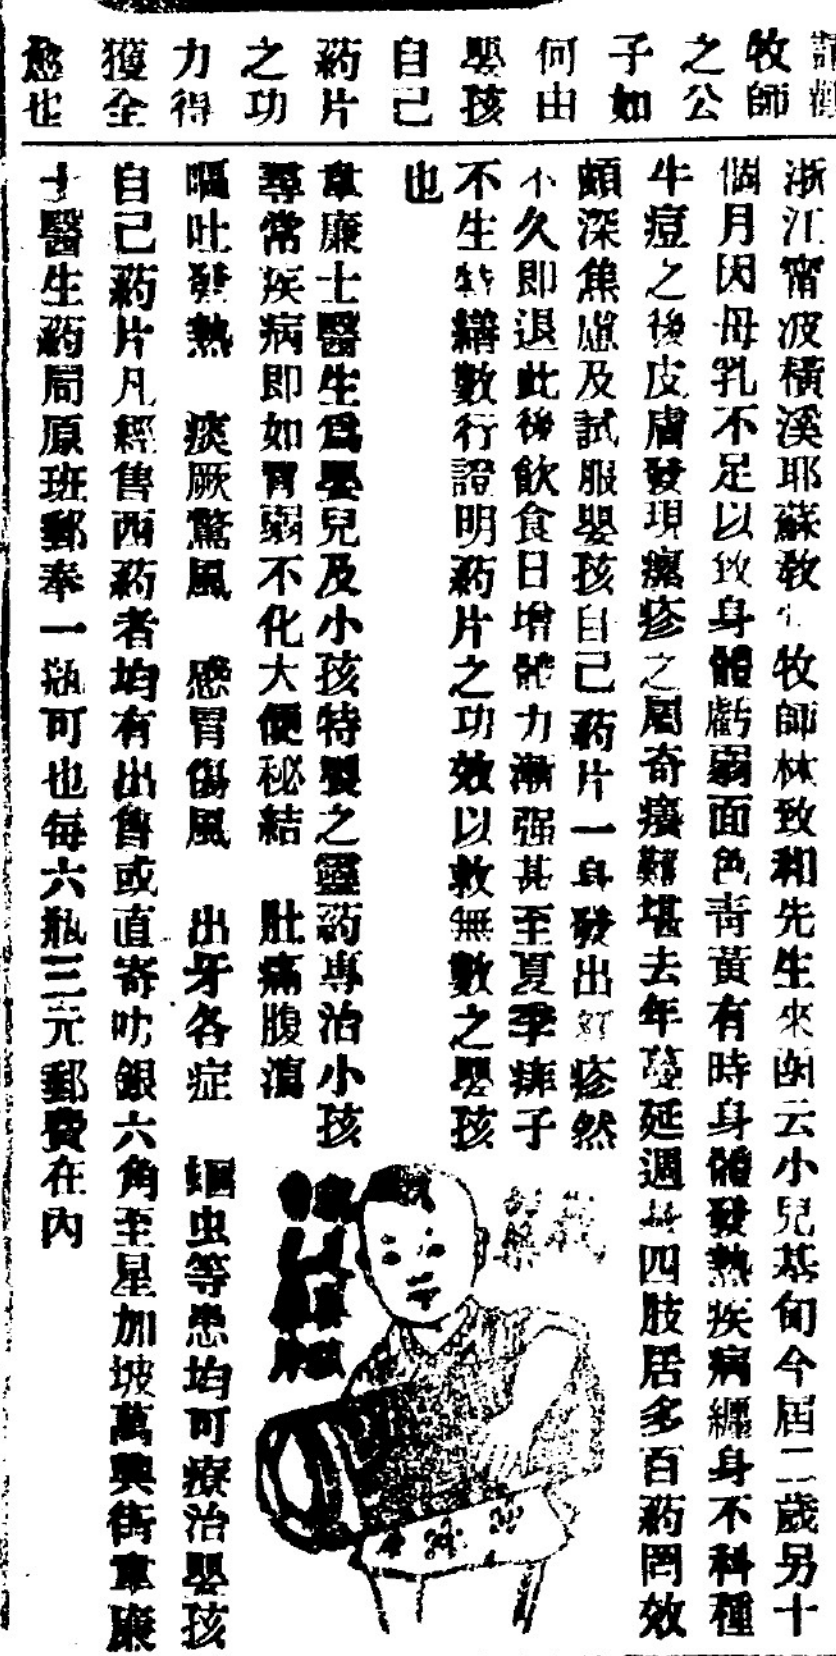 牧師
之公
子如
何由
嬰孩
自己
药片
之功
力得
獲全
愈也
浙江甯波橫溪耶蘇教 牧師林致和先生來函云小兒基甸今屆二歲另十
個月因母乳不足以致身體虧弱面色青黃有時身體發熱疾病纏身不料種
牛痘之後皮膚發現癘疹之周奇癢難堪去年蔓延週 四肢居多百药罔效
頗深焦慮及試服嬰孩自己药片一身發出紅疹然
不久即退此後飲食日增體力漸强甚至夏季痱子
不生特繕數行證明药片之功效以救無數之嬰孩
也
韋廉士醫生爲嬰兒及小孩特製之靈药專治小孩
尋常疾病即如胃弱不化大便秘結 肚痛腹瀉
嘔吐發熱 痰厥驚風 感冒傷風 出牙各症 蛔虫等患均可療治嬰孩
自己药片凡經售西药者均有出售或直寄叻銀六角至星加坡萬興街韋廉
士醫生药局原班郵奉一瓶可也每六瓶三元郵費在內